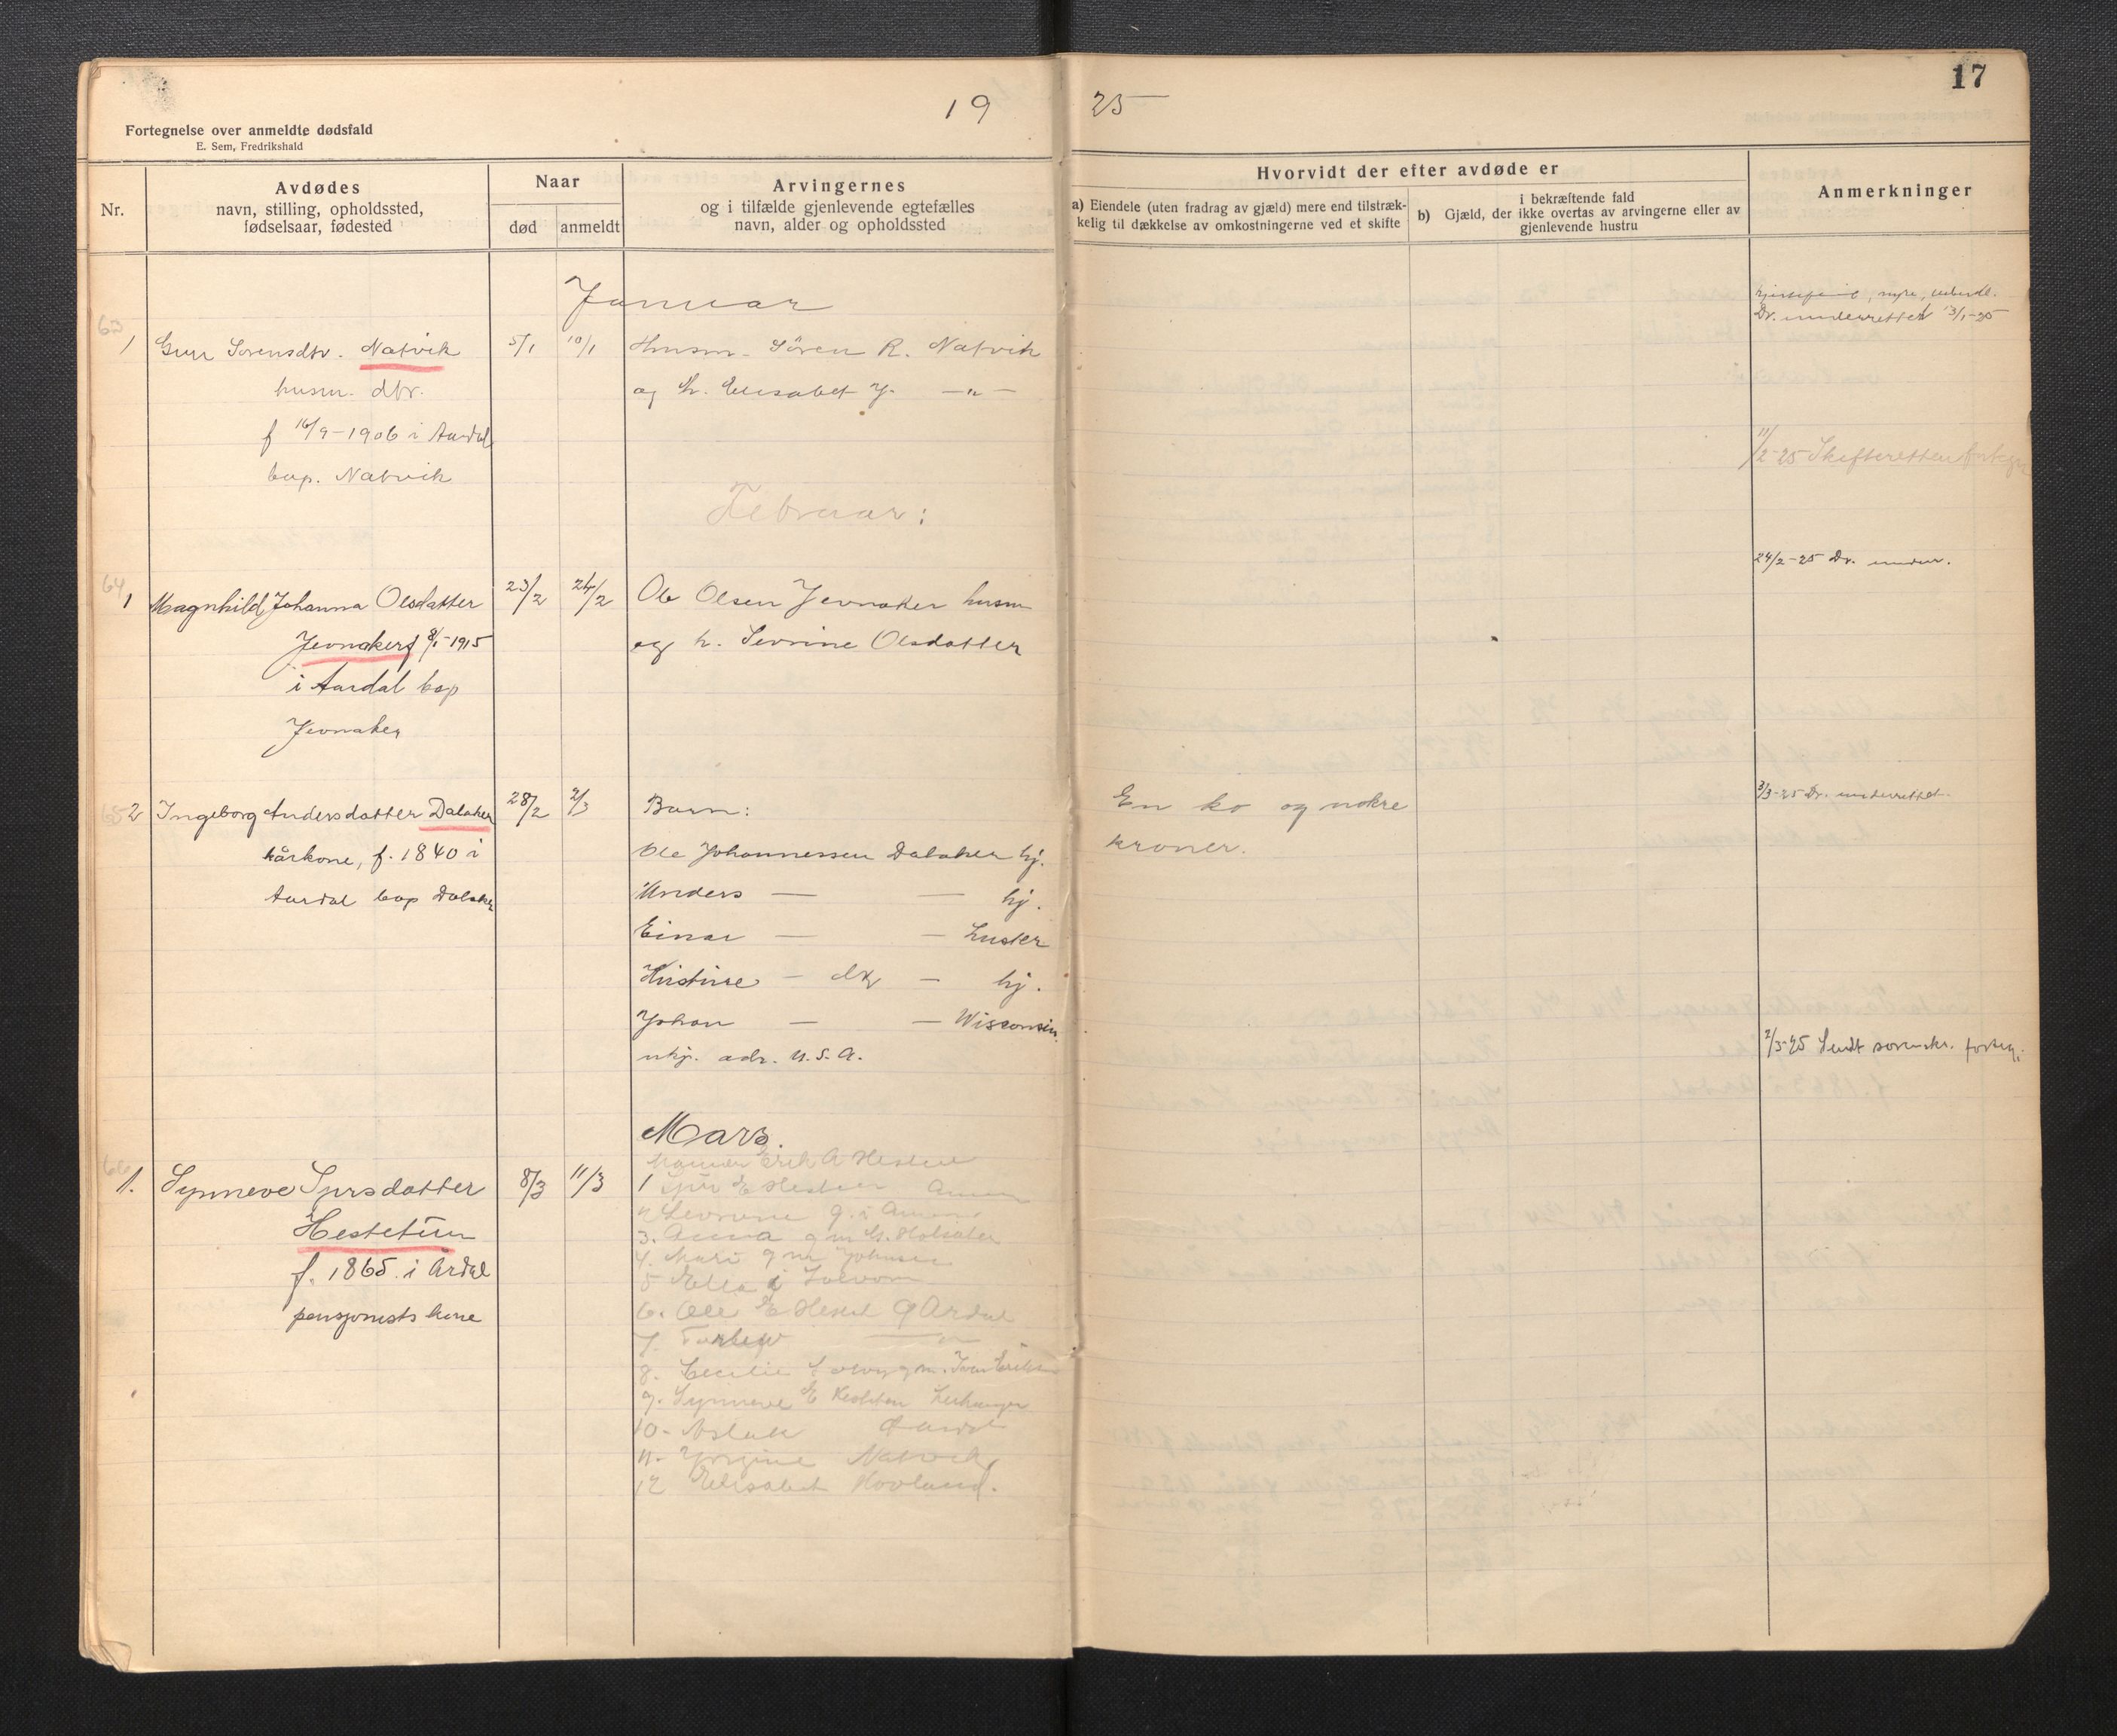 17
19 25
Fortegnelse over anmeldte dødsfald
E. Sem, Fredrikshald
Nr.
Avdødes
navn, stilling, opholdssted,
fødselsaar, fødested
Naar
død
anmeldt
Arvingernes
og i tilfælde gjenlevende egtefælles
navn, alder og opholdssted
Hvorvidt der efter avdøde er
a) Eiendele (uten fradrag av gjæld) mere end tilstræk-
kelig til dækkelse av omkostningerne ved et skifte
i bekræftende fald
b) Gjæld, der ikke overtas av arvingerne eller av
gjenlevende hustru
Anmerkninger
Januar
Dr. underrettet 13/1-25
63
1 Guri Sørensdtr. Natvik 5/1 10/1 Husm. Søren R. Natvik
husm. dtr. og h. Elisabet J. —"—
f 16/9-1906 i Aardal
bop. Natvik
11/2-25 Skifteretten
Februar:
24/2-25 Dr. underr.
64
1 Magnhild Johanna Olsdatter 23/2 24/2 Ole Olsen Jevnaker husm
Jevnaker f 8/1-1915 og h. Sevrine Olsdatter
i Aardal bop
Jevnaker
65
2 Ingeborg Andersdatter Dalaker 28/2 2/3 Barn: En ko og nokre 3/3-25 Dr. underrettet.
kårkone, f. 1840 i Ole Johannessen Dalaker hj. kroner.
Aardal bop Dalaker Anders — — hj.
Einar — — Luster
Kristine — dtr — hj.
Johan — — Wisconsin
ukj. adr. U.S.A.
2/3-25 Sendt sorenskr. forteg.
Mars.
66
1. Synneve Sjursdatter 8/3 11/3
Hestetun
f. 1865 i Årdal
pensjonists kone
Erik A Hestet
1 Sjur E Hestetun
2 Sevrine g. i
3. Anna g m
4. Mari g m Johnsen
5 Ella i
6. Ole E Hestet Årdal
7. Torleiv —"—
8. Cecilie g m. Iver Eriksen
9. Synneve E Leikanger
10. Aslak Aardal
11. Jørgine Natvik
12 Elisabet Hovland.